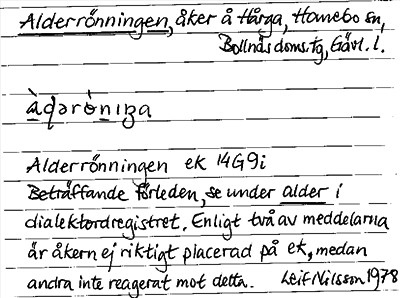 Alderrönningen, åker å Hårga, Hanebo sn,
Bollnäs doms.tg, Gävl. l.
àɖərö̀niŋa
Alderrönningen ek 14G9i
Beträffande förleden, se under alder i
dialektordregistret. Enligt två av meddelarna
är åkern ej riktigt placerad på ek, medan
andra inte reagerat mot detta. Leif Nilsson 1978